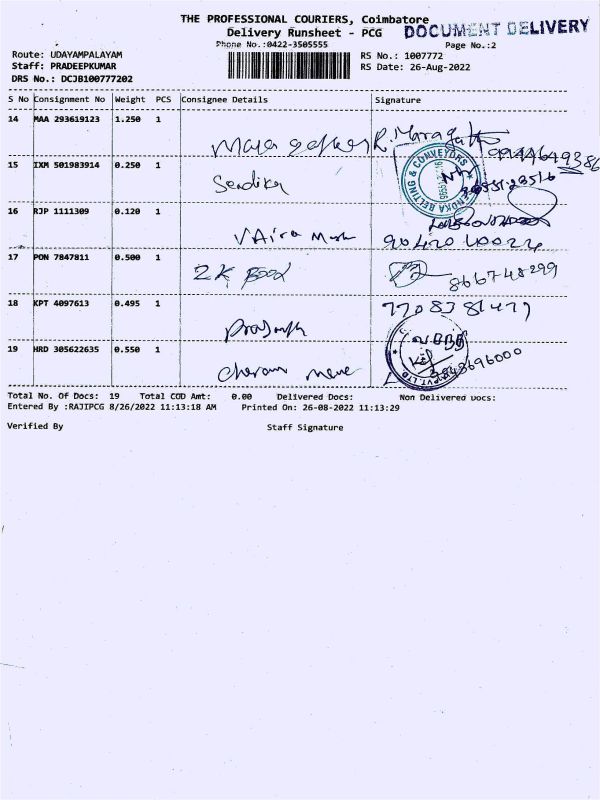 THE PROFESSIONAL COURIERS, Coimbatore
DOCUMENT DELIVERY
Delivery Runsheet - PCG
Phone No.:0422-3505555
Page No.:2
Route: UDAYAMPALAYAM
RS No.: 1007772
Staff: PRADEEPKUMAR
RS Date: 26-Aug-2022
DRS No.: DCJB100777202
S No Consignment No Weight PCS Consignee Details Signature
14 MAA 293619123 1.250 1
R. Maragatha
9944649386
15 IXM 501983914 0.250 1
BELTING & CONVEYORS
16 RJP 1111309 0.120 1
17 PON 7847811 0.500 1
2K Bood
8667448299
18 KPT 4097613 0.495 1
7708381477
19 HRD 305622635 0.550 1
PVT.LTD
9843696000
Total No. Of Docs: 19 Total COD Amt: 0.00 Delivered Docs: Non Delivered Docs:
Entered By :RAJIPCG 8/26/2022 11:13:18 AM Printed On: 26-08-2022 11:13:29
Verified By Staff Signature